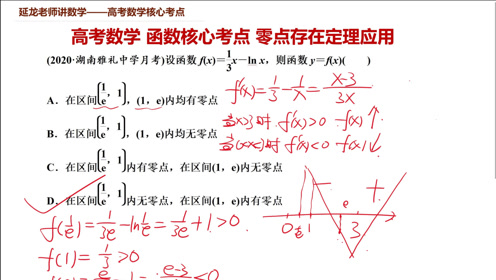 延龙老师讲数学——高考数学核心考点
高考数学 函数核心考点 零点存在定理应用
(2020·湖南雅礼中学月考)设函数 f(x)=1/3x-ln x，则函数 y=f(x)(　　)
A．在区间(1/e, 1)，(1，e)内均有零点
B．在区间(1/e, 1)，(1，e)内均无零点
C．在区间(1/e, 1)内有零点，在区间(1，e)内无零点
D．在区间(1/e, 1)内无零点，在区间(1，e)内有零点
f′(x)=1/3-1/x=x-3/3x
当x>3时 f′(x)>0 f(x)↑
时 f′(x)<0 f(x)↓
f(1/e)=1/3e-ln1/e=1/3e+1>0
f(1)=1/3>0
e-3
0 1/e 1 e 3
+